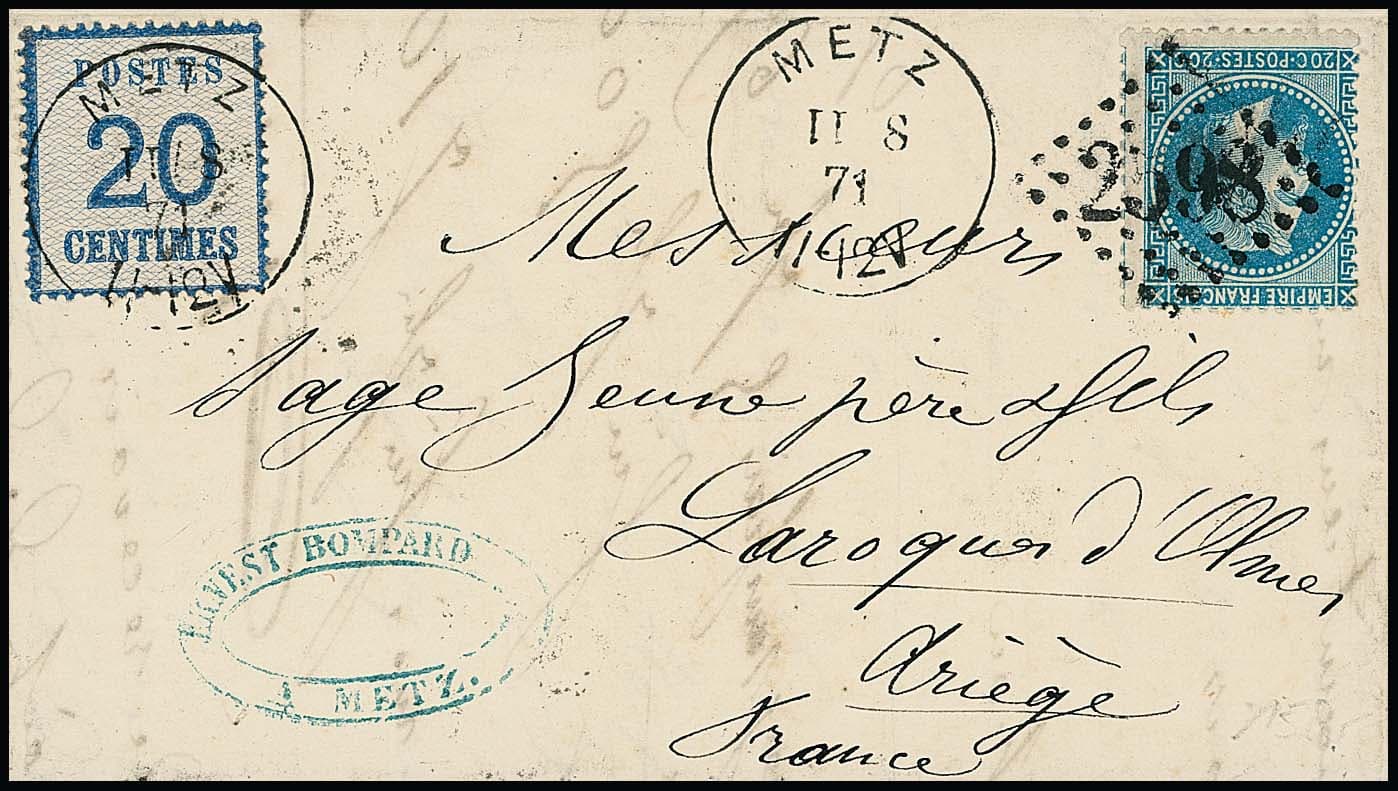 POSTES
20
CENTIMES
METZ
11 8
71
METZ
11 8
71
20 C·POSTES·20
EMPIRE FRANC
2598
Messieurs
Sage Jeune père & fils
Laroques d'Olmes
Ariège
France
ERNEST BOMPARD
A METZ.